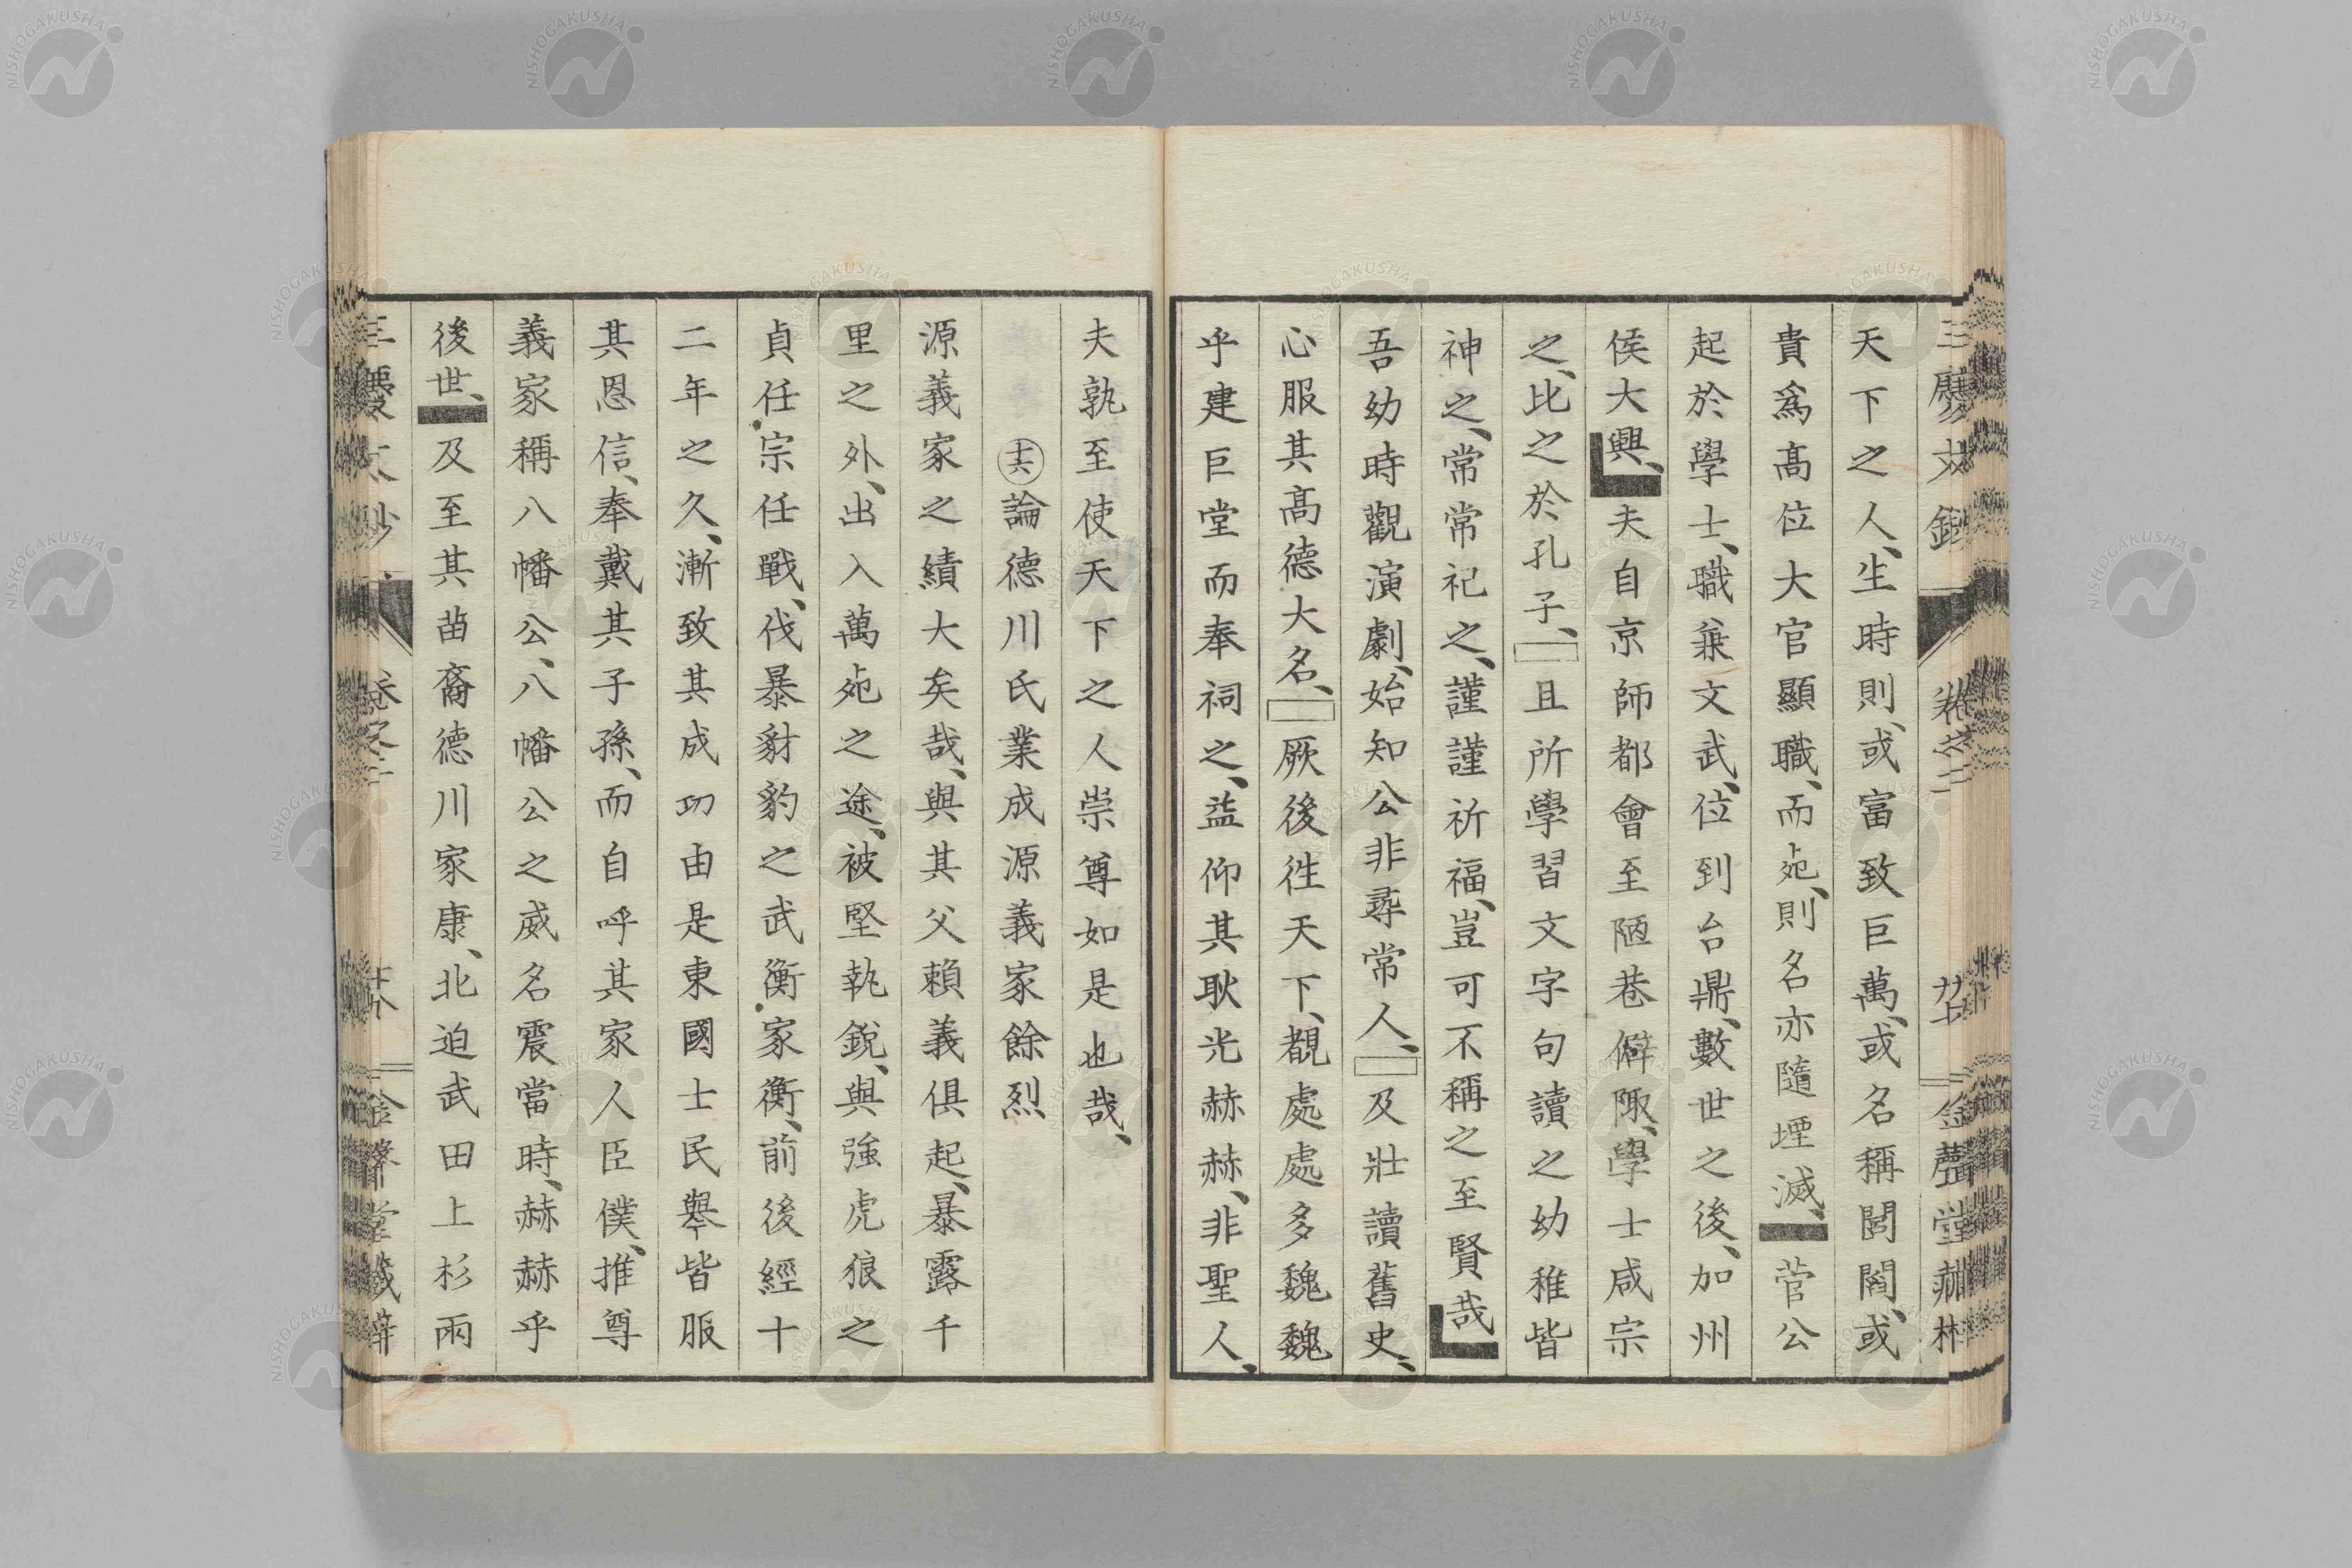 天下之人、生時則、或富致巨萬、或名稱閭閻、或
貴爲高位大官顯職、而死、則名亦隨堙滅、菅公
起於學士、職兼文武、位到台鼎、數世之後、加州
侯大興、夫自京師都會至陋巷僻陬、學士咸宗
之、比之於孔子、且所學習文字句讀之幼稚皆
神之、常常祀之、謹謹祈福、豈可不稱之至賢哉
吾幼時觀演劇、始知公非尋常人、及壯讀舊史、
心服其高德大名、厥後徃天下、覩處處多魏魏
乎建巨堂而奉祠之、益仰其耿光赫赫、非聖人、
夫孰至使天下之人崇尊如是也哉、
十六 論德川氏業成源義家餘烈
源義家之績大矣哉、與其父賴義俱起、暴露千
里之外、出入萬死之途、被堅執銳、與強虎狼之
貞任・宗任戰、伐暴豺豹之武衡・家衡、前後經十
二年之久、漸致其成功由是東國士民舉皆服
其恩信、奉戴其子孫、而自呼其家人臣僕、推尊
義家稱八幡公、八幡公之威名震當時、赫赫乎
後世、及至其苗裔德川家康、北迫武田上杉兩
卷之二
金聲堂
NISHOGAKUSHA